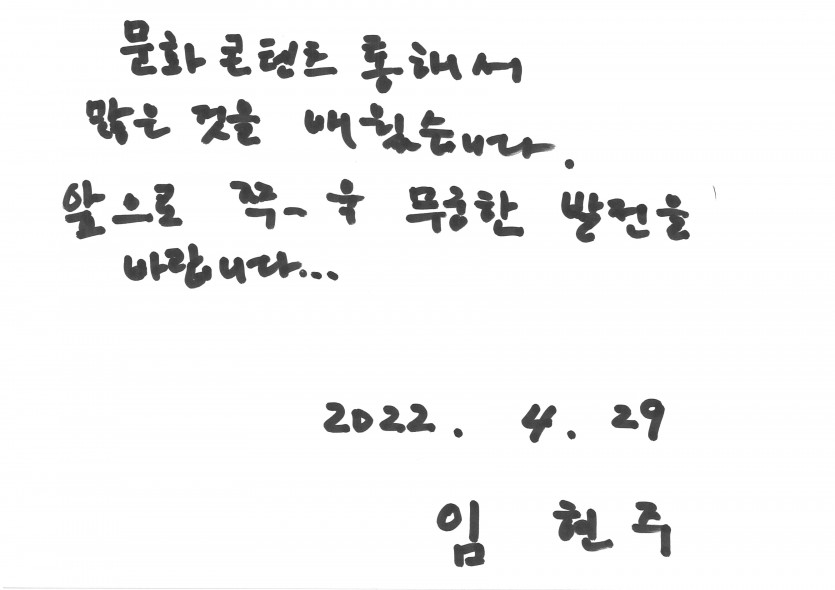 문화콘텐츠 통해서
많은 것을 배웠습니다.
앞으로 쭉-욱 무궁한 발전을
바랍니다...
2022. 4. 29
임 현 주